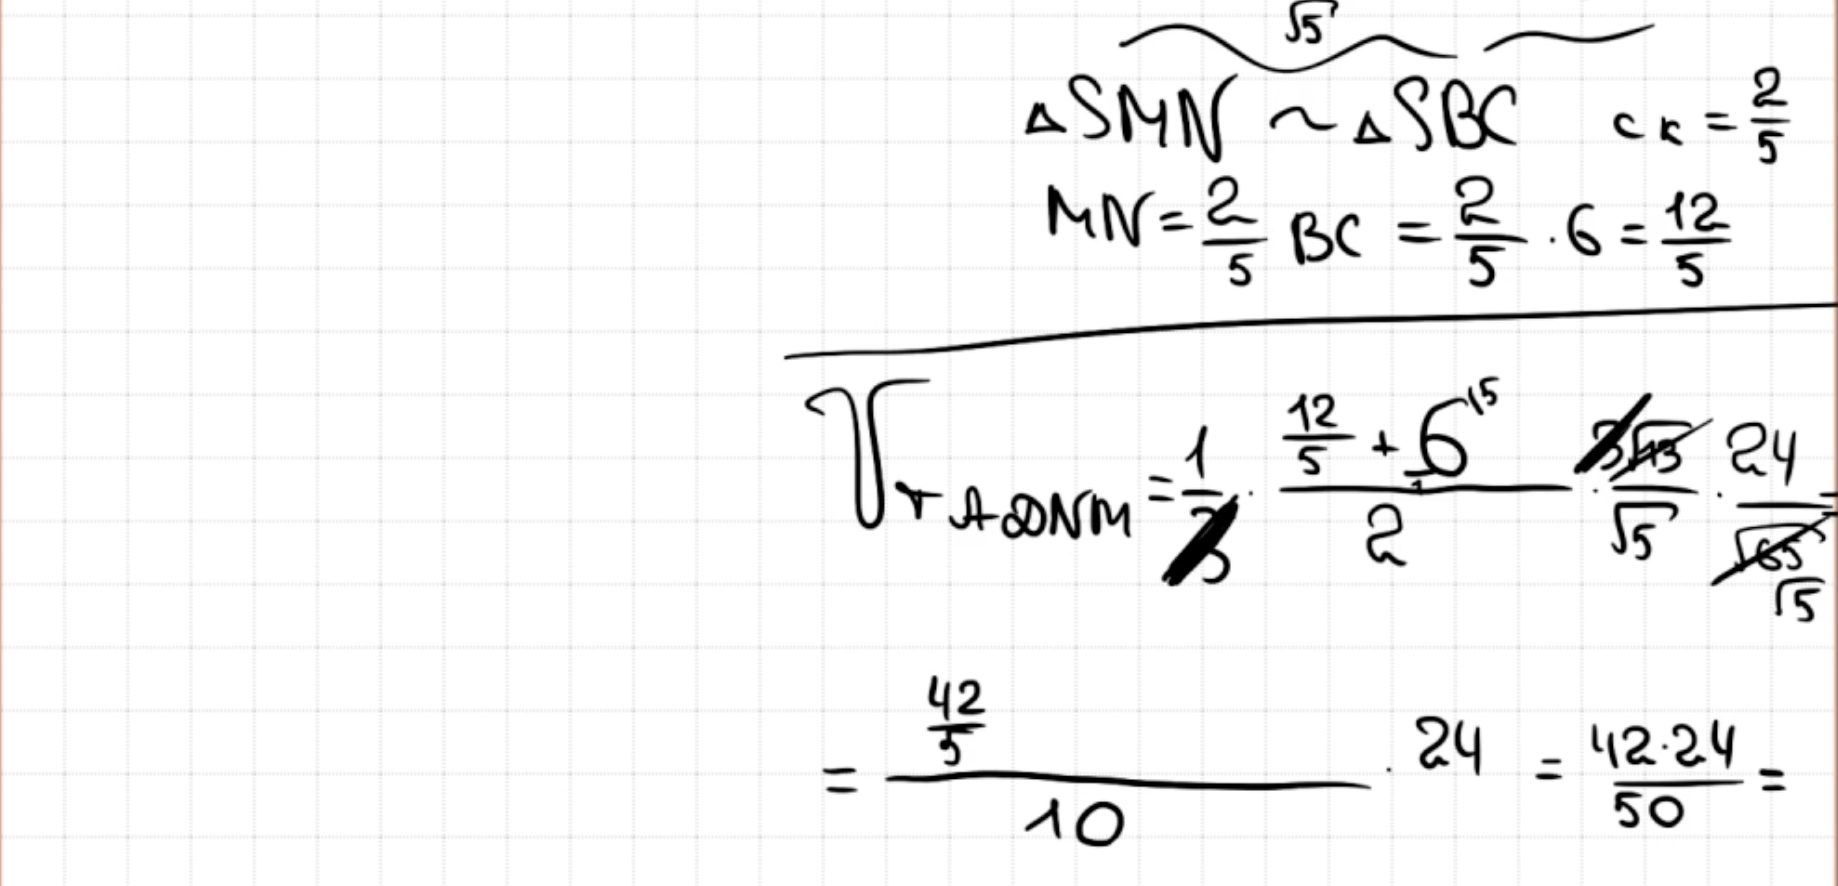 √5
△SMN ~ △SBC ск = 2/5
MN = 2/5 BC = 2/5 · 6 = 12/5
V т ADNM = 1/3 · (12/5 + 6/1^15)/2 · 3√13/√5 · 24/√65 =
√5
= (42/5)/10 · 24 = 42·24/50 =